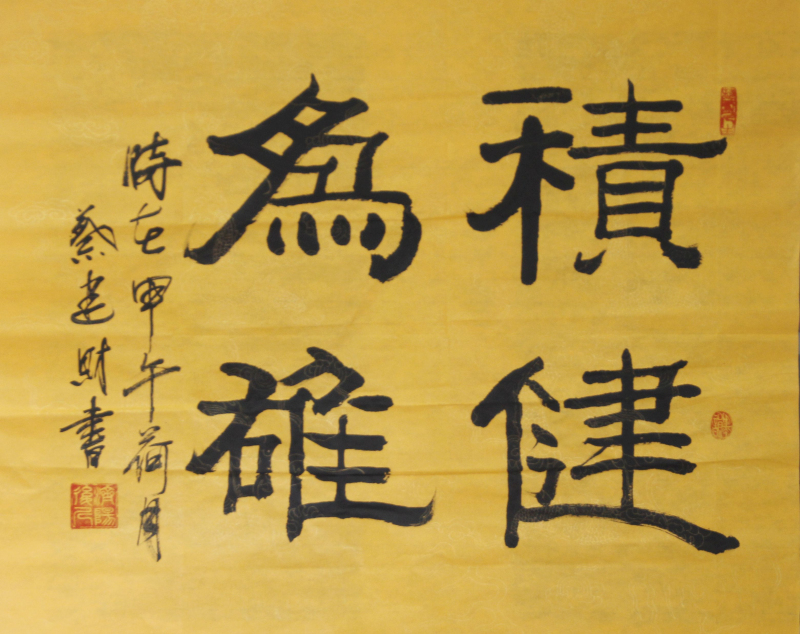 積健
為雄
時在甲午荷月
蔡建財書